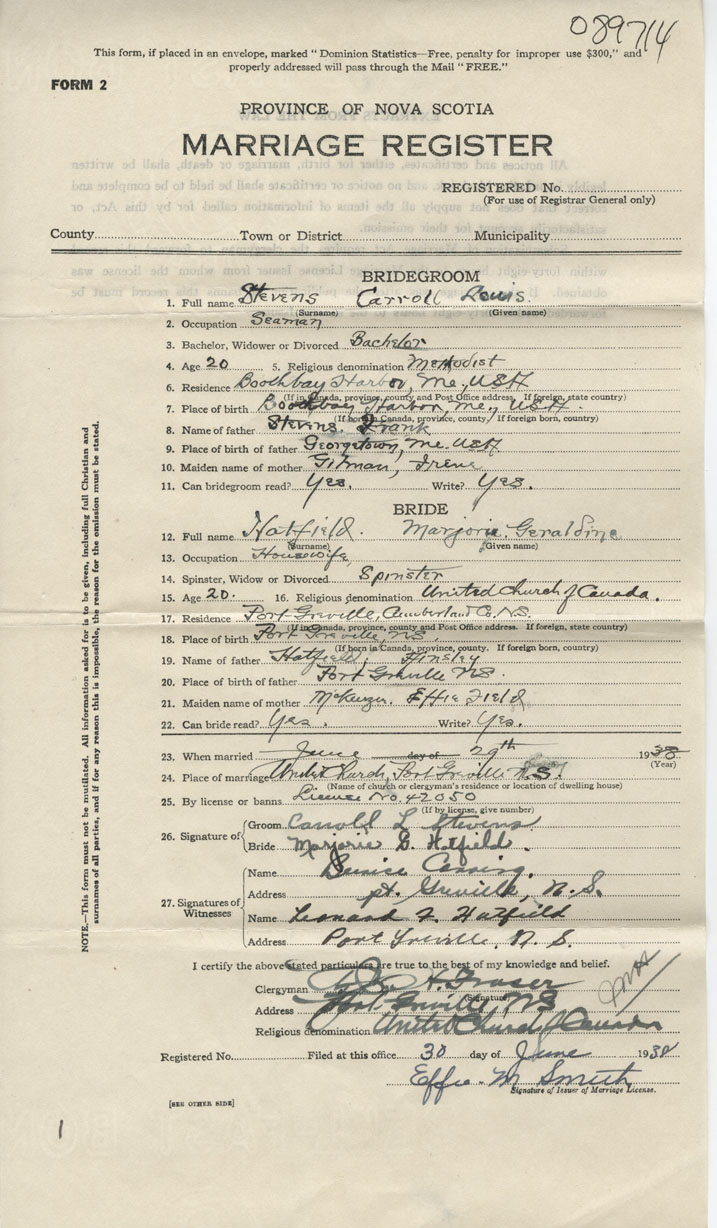 089714
This form, if placed in an envelope, marked "Dominion Statistics—Free, penalty for improper use $300," and
properly addressed will pass through the Mail "FREE."
FORM 2
PROVINCE OF NOVA SCOTIA
MARRIAGE REGISTER
REGISTERED No.
(For use of Registrar General only)
County Town or District Municipality
BRIDEGROOM
1. Full name Stevens Carroll Lewis.
(Surname) (Given name)
2. Occupation Seaman
3. Bachelor, Widower or Divorced Bachelor
4. Age 20 5. Religious denomination Methodist
6. Residence Boothbay Harbor, Me., USA
(If in Canada, province, county and Post Office address. If foreign, state country)
7. Place of birth Boothbay Harbor, Me., USA.
(If born in Canada, province, county. If foreign born, country)
8. Name of father Stevens, Frank
9. Place of birth of father Georgetown, Me. USA
10. Maiden name of mother Gilman, Irene
11. Can bridegroom read? Yes. Write? Yes.
BRIDE
12. Full name Hatfield. Marjorie Geraldine
(Surname) (Given name)
13. Occupation Housewife
14. Spinster, Widow or Divorced Spinster
15. Age 20. 16. Religious denomination United Church of Canada.
17. Residence Port Greville, Cumberland Co. N.S.
(If in Canada, province, county and Post Office address. If foreign, state country)
18. Place of birth Port Greville, NS.
(If born in Canada, province, county. If foreign born, country)
19. Name of father Hatfield,
20. Place of birth of father Port Greville NS.
21. Maiden name of mother Effie Field
22. Can bride read? Yes. Write? Yes.
23. When married June day of 29th 1938
(Year)
24. Place of marriage United Church, Port Greville N.S.
(Name of church or clergyman's residence or location of dwelling house)
25. By license or banns License No. 42050
(If by license, give number)
26. Signature of Groom Carroll L Stevens
Bride Marjorie G. Hatfield.
27. Signatures of Witnesses
Name
Address pt. Greville, N.S.
Name Leonard F. Hatfield
Address Port Greville, N.S.
I certify the above stated particulars are true to the best of my knowledge and belief.
Clergyman H. Fraser
(Signature)
Address Port Greville, NS
Religious denomination United Church of Canada
Registered No. Filed at this office 30 day of June 1938
Effie M Smith
Signature of Issuer of Marriage License.
[SEE OTHER SIDE]
1
NOTE.—This form must not be mutilated. All information asked for is to be given, including full Christian and
surnames of all parties, and if for any reason this is impossible, the reason for the omission must be stated.